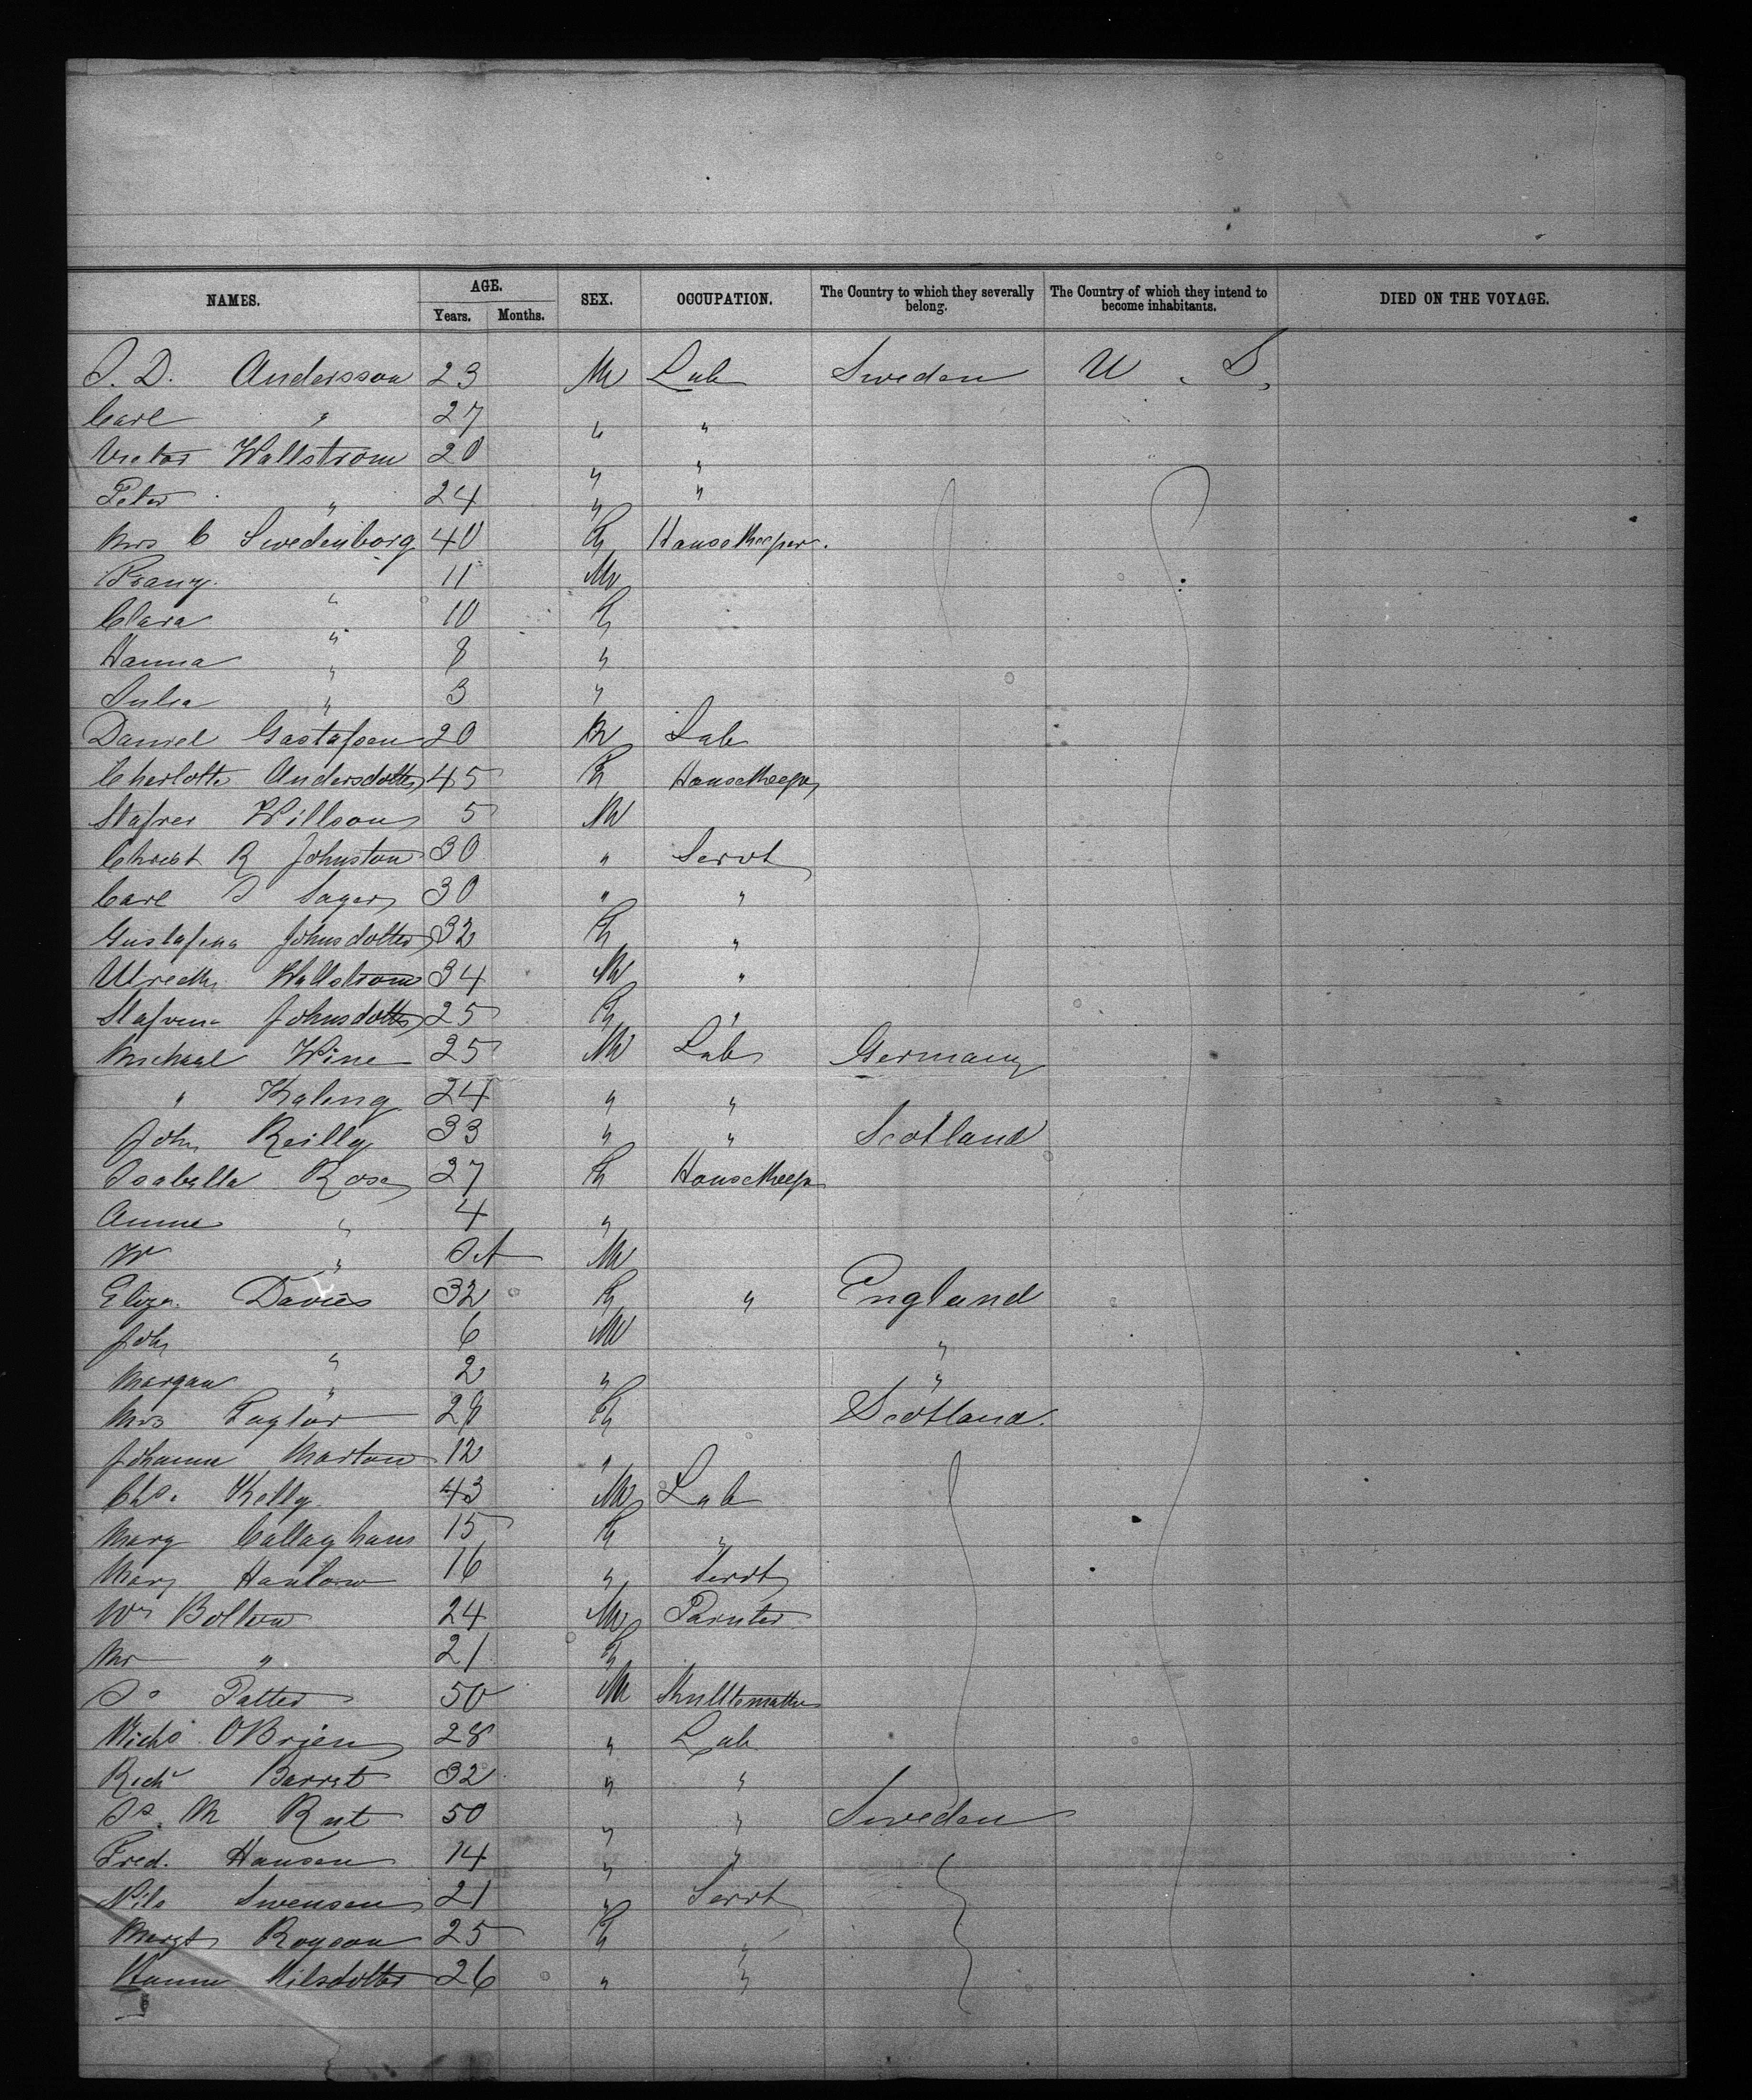 NAMES. AGE. SEX. OCCUPATION. The Country to which they severally belong. The Country of which they intend to become inhabitants. DIED ON THE VOYAGE.
Years. Months.
J. D. Andersson 23 M Lab Sweden U. S.
Carl " 27 " "
Victor Wallstrom 20 " "
Peter " 24 " "
Mrs C Swedenborg 40 F Housekeeper.
Franz " 11 M
Clara " 10 F
Hanna " 8 "
Julia " 3 "
Daniel Gustafson 20 M Lab
Charlotte Andersdotter 45 F Housekeeper
Willson 5 M
Christ R Johnston 30 " Servt
Carl J Sager 30 " "
Gustafina Johnsdotter 32 F "
Wallstrom 34 M "
Johnsdotter 25 F "
Michael Wine 25 M Lab Germany
" Kaling 24 " "
John Reilly 33 " " Scotland
Isabella Rose 27 F Housekeeper
Annie " 4 "
W " Inft M
Eliza Davies 32 F " England
John " 6 M "
Morgan " 2 " "
Mrs Taylor 28 F Scotland.
Johanna Morton 12 "
Chs. Kelly 43 M Lab
Mary Callaghan 15 F "
Mary Hanlow 16 " Servt
Wm Bolton 24 M Painter
Mrs " 21 F
Js Patter 50 M
Michl OBrien 28 " Lab
Richd Barret 32 " "
Js. M Rut 50 " " Sweden
Fred. Hansen 14 " "
Nils Swensen 21 " Servt
Margt Rogson 25 F "
Hanna Nilsdotter 26 " "